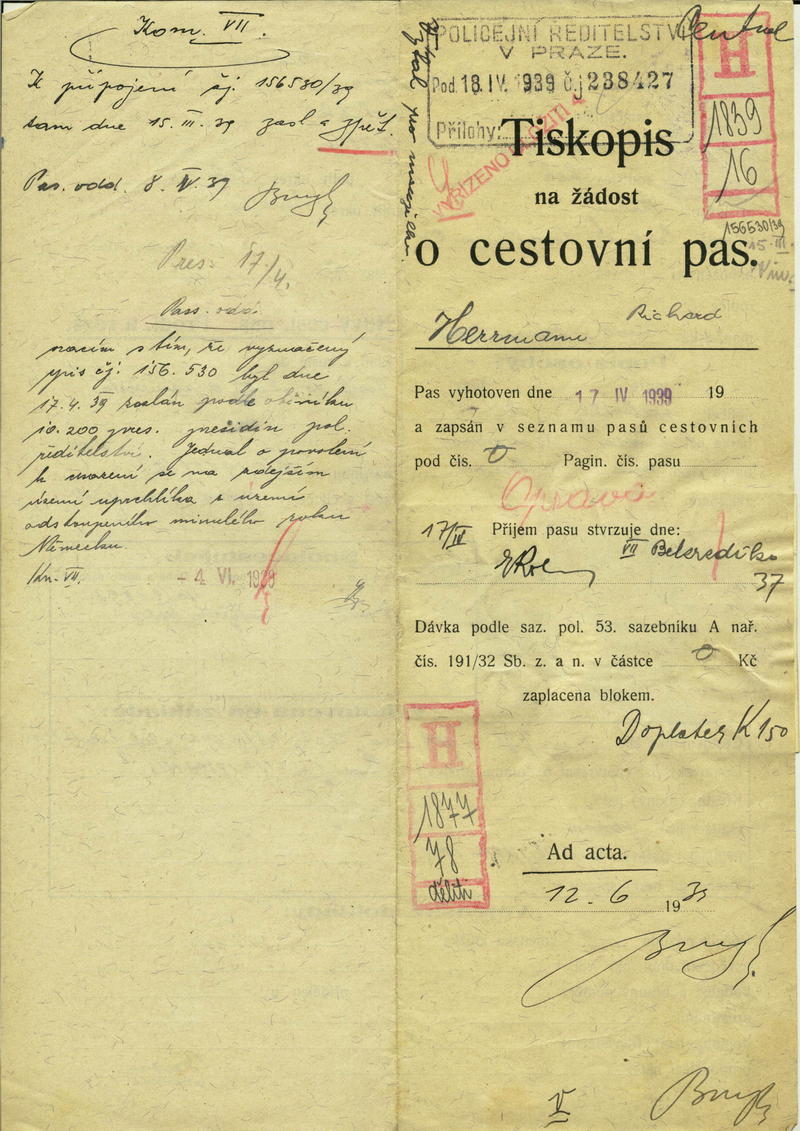 Kom. VII.
K připojení čj. 156530/39
tam dne 15. III. 39 zasl. a zpět.
Pas. odd. 8. IV. 39
Pres: 17/4.
Pass. odd.
vracím s tím, že vyznačený
spis čj: 156.530 byl dne
17.4.39 zaslán podle oběžníku
10.200 pres. presidiu pol.
ředitelství. Jednal o povolení
k usazení se na zdejším
území uprchlíka z území
odstoupeného minulého roku
Německu.
Km. VII. - 4. VI. 1939
POLICEJNÍ ŘEDITELSTVÍ
V PRAZE.
Pod. 18. IV. 1939 čj. 238427
Přílohy:
VYŘÍZENO
H
1839
16
156530/39
15. III.
Tiskopis
na žádost
o cestovní pas.
Richard
Herrmann
Pas vyhotoven dne 17 IV 1939 19
a zapsán v seznamu pasů cestovních
pod čís. 0 Pagin. čís. pasu
Oprava
17/IV Příjem pasu stvrzuje dne:
VII Belcrediho
37
Dávka podle saz. pol. 53. sazebníku A nař.
čís. 191/32 Sb. z. a n. v částce 0 Kč
zaplacena blokem.
Doplatek K 150
H
1877
78
děliti
Ad acta.
12. 6 1939
V